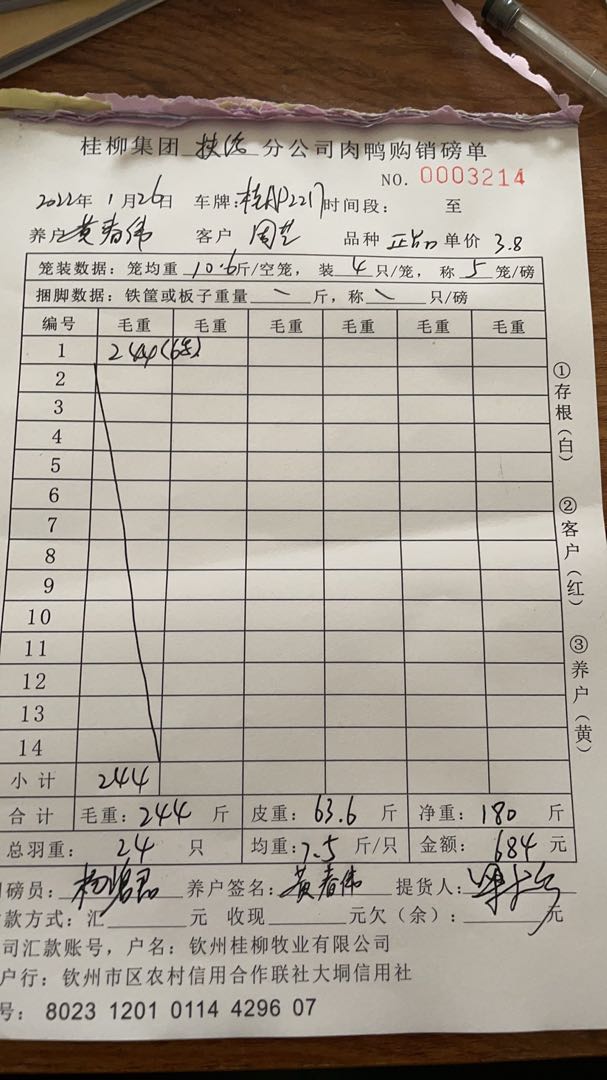 桂柳集团 扶绥 分公司肉鸭购销磅单
NO. 0003214
2022年 1月26日 车牌:桂AP2217 时间段: 至
养户 黄春伟 客户 周芝 品种 正品 单价 3.8
笼装数据: 笼均重 10.6 斤/空笼, 装 4 只/笼, 称 5 笼/磅
捆脚数据: 铁筐或板子重量 \ 斤, 称 \ 只/磅
编号 毛重 毛重 毛重 毛重 毛重 毛重
1 244(6笼)
2
3
4
5
6
7
8
9
10
11
12
13
14
小计 244
合计 毛重: 244 斤 皮重: 63.6 斤 净重: 180 斤
总羽重: 24 只 均重: 7.5 斤/只 金额: 684 元
磅员: 养户签名: 黄春伟 提货人:
款方式: 汇 元 收现 元 欠(余): 元
司汇款账号, 户名: 钦州桂柳牧业有限公司
户行: 钦州市区农村信用合作联社大垌信用社
号: 8023 1201 0114 4296 07
①存根(白)
②客户(红)
③养户(黄)